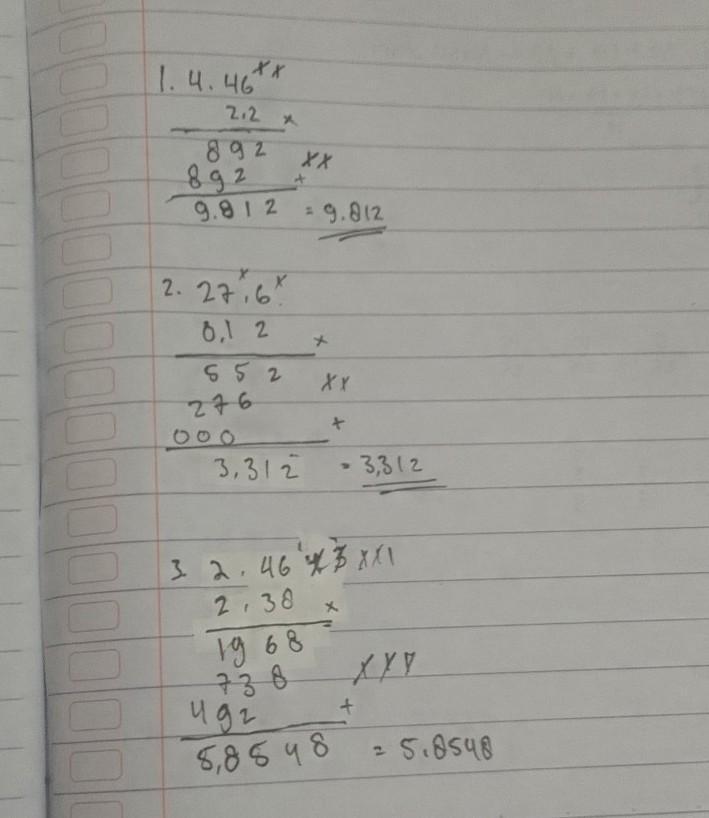 1. 4.46 xx
2.2 x
892
892 xx +
9.812 = 9.812
2. 27x,6x
0,12 x
552
276 xx
000 +
3,312 = 3,312
3. 2.46
2.38 x
1968
738
492 +
5,8548 = 5.8548